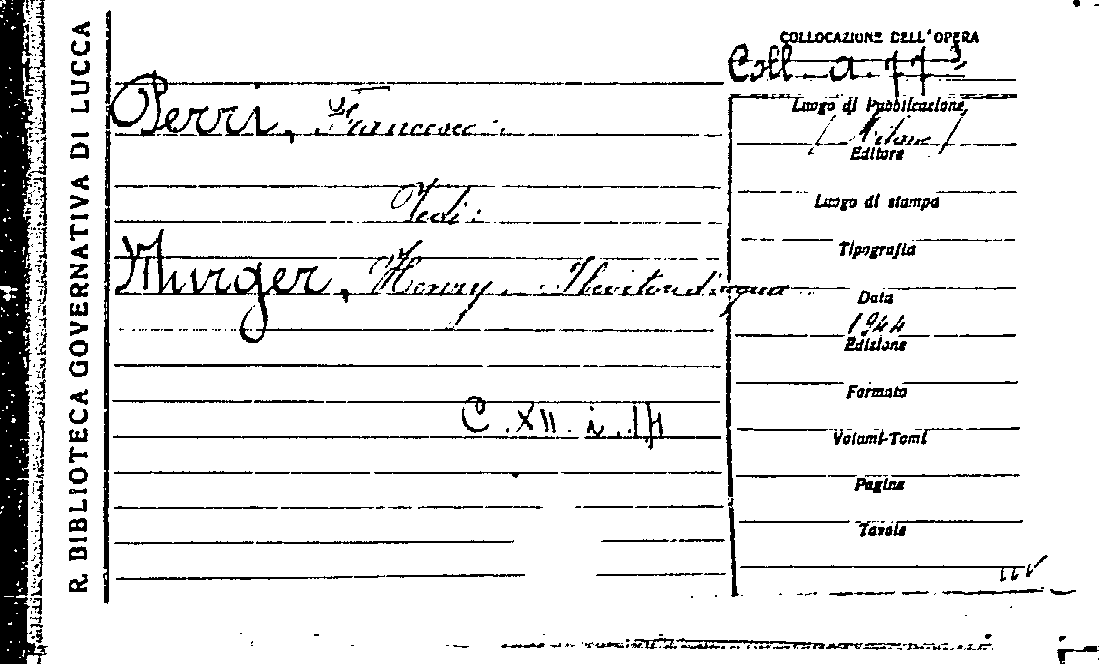 R. BIBLIOTECA GOVERNATIVA DI LUCCA
COLLOCAZIONE DELL'OPERA
Coll. a. 77³
Perri, Francesco:
Vedi:
Murger, Henry. I bevitori d'acqua
C. XII. i. 14
Luogo di Pubblicazione
(Milano)
Editore
Luogo di stampa
Tipografia
Data
1944
Edizione
Formato
Volumi-Tomi
Pagine
Tavole